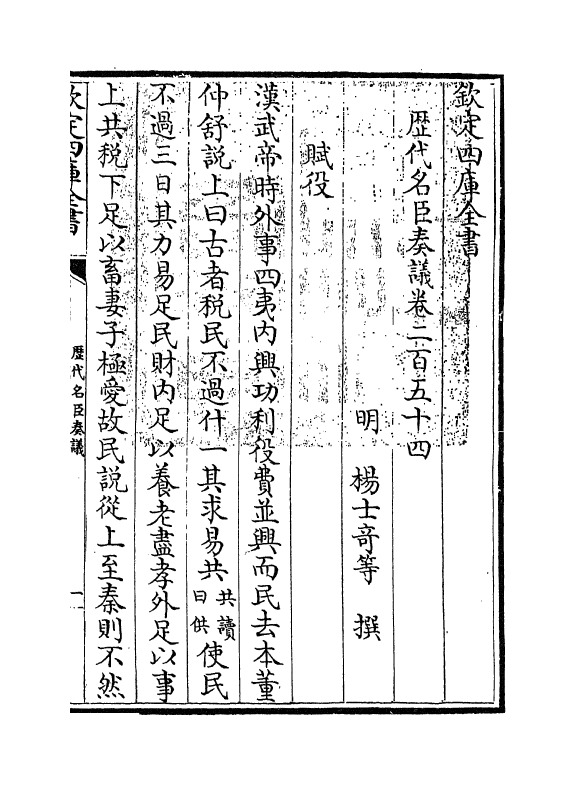 欽定四庫全書
歴代名臣奏議卷二百五十四
明 楊士竒等 撰
賦役
漢武帝時外事四夷内興功利役費並興而民去本董
仲舒説上曰古者税民不過什一其求易共共讀曰供使民
不過三日其力易足民財内足以養老盡孝外足以事
上共税下足以畜妻子極愛故民説從上至秦則不然
欽定四庫全書
歴代名臣奏議
一